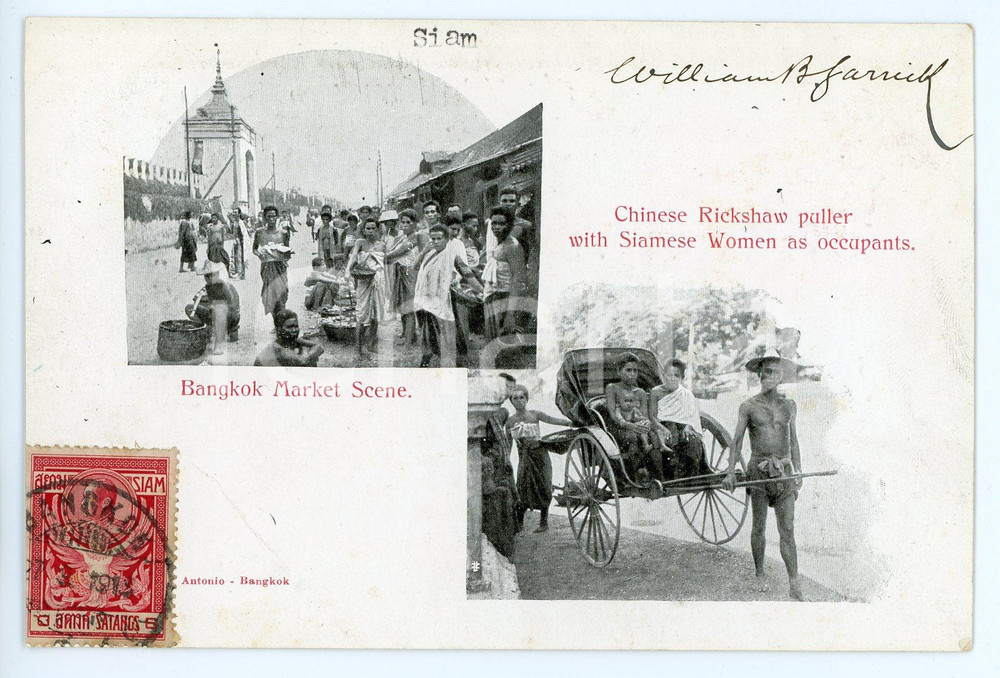 Siam
William B Garrick
Chinese Rickshaw puller
with Siamese Women as occupants.
Bangkok Market Scene.
สยาม SIAM
BANGKOK
1912
๖ สตางค์ SATANGS 6
Antonio - Bangkok